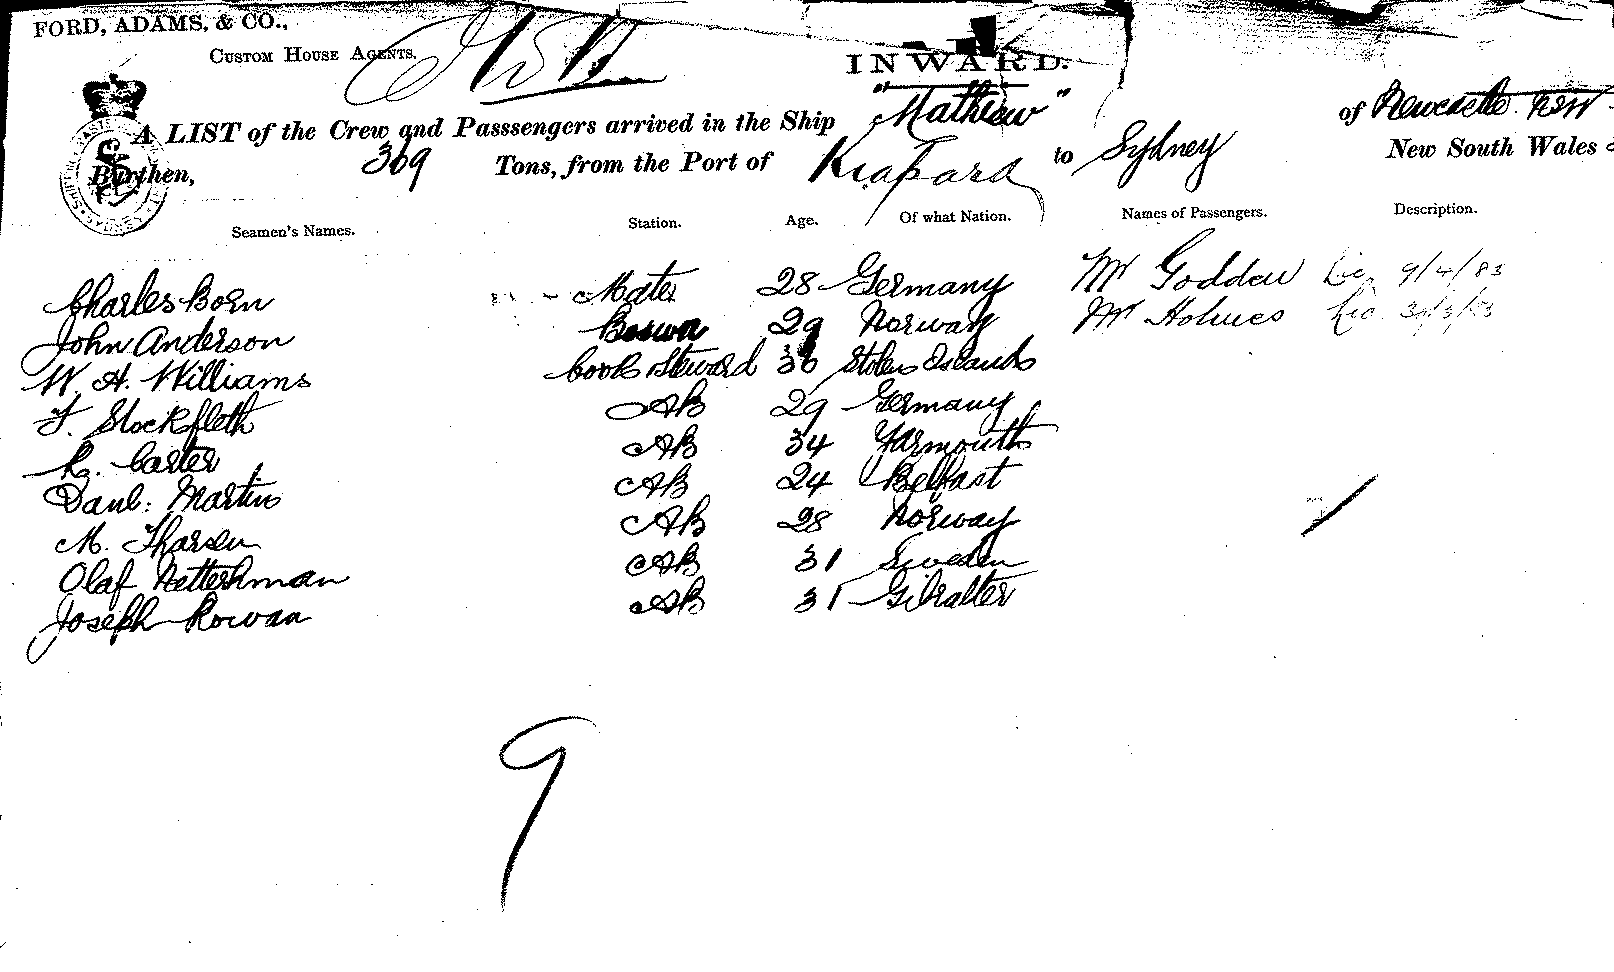 FORD, ADAMS, & CO.,
CUSTOM HOUSE AGENTS.
INWARD.
A LIST of the Crew and Passsengers arrived in the Ship "Mathieu" of Newcastle. NSW
Burthen, 369 Tons, from the Port of to Sydney New South Wales
Seamen's Names. Station. Age. Of what Nation. Names of Passengers. Description.
Charles Born Mate 28 Germany Mr Godden Lic. 9/4/83
John Anderson Bosun 29 Norway Mr Holmes Lic.
W. H. Williams Cook Steward 36 Islands
F. Stockfleth AB 29 Germany
R. Carter AB 34 Yarmouth
Danl: Martin AB 24 Belfast
M. Tharsen AB 28 Norway
Olaf AB 31 Sweden
Joseph Rowan AB 31 Gibralter
9